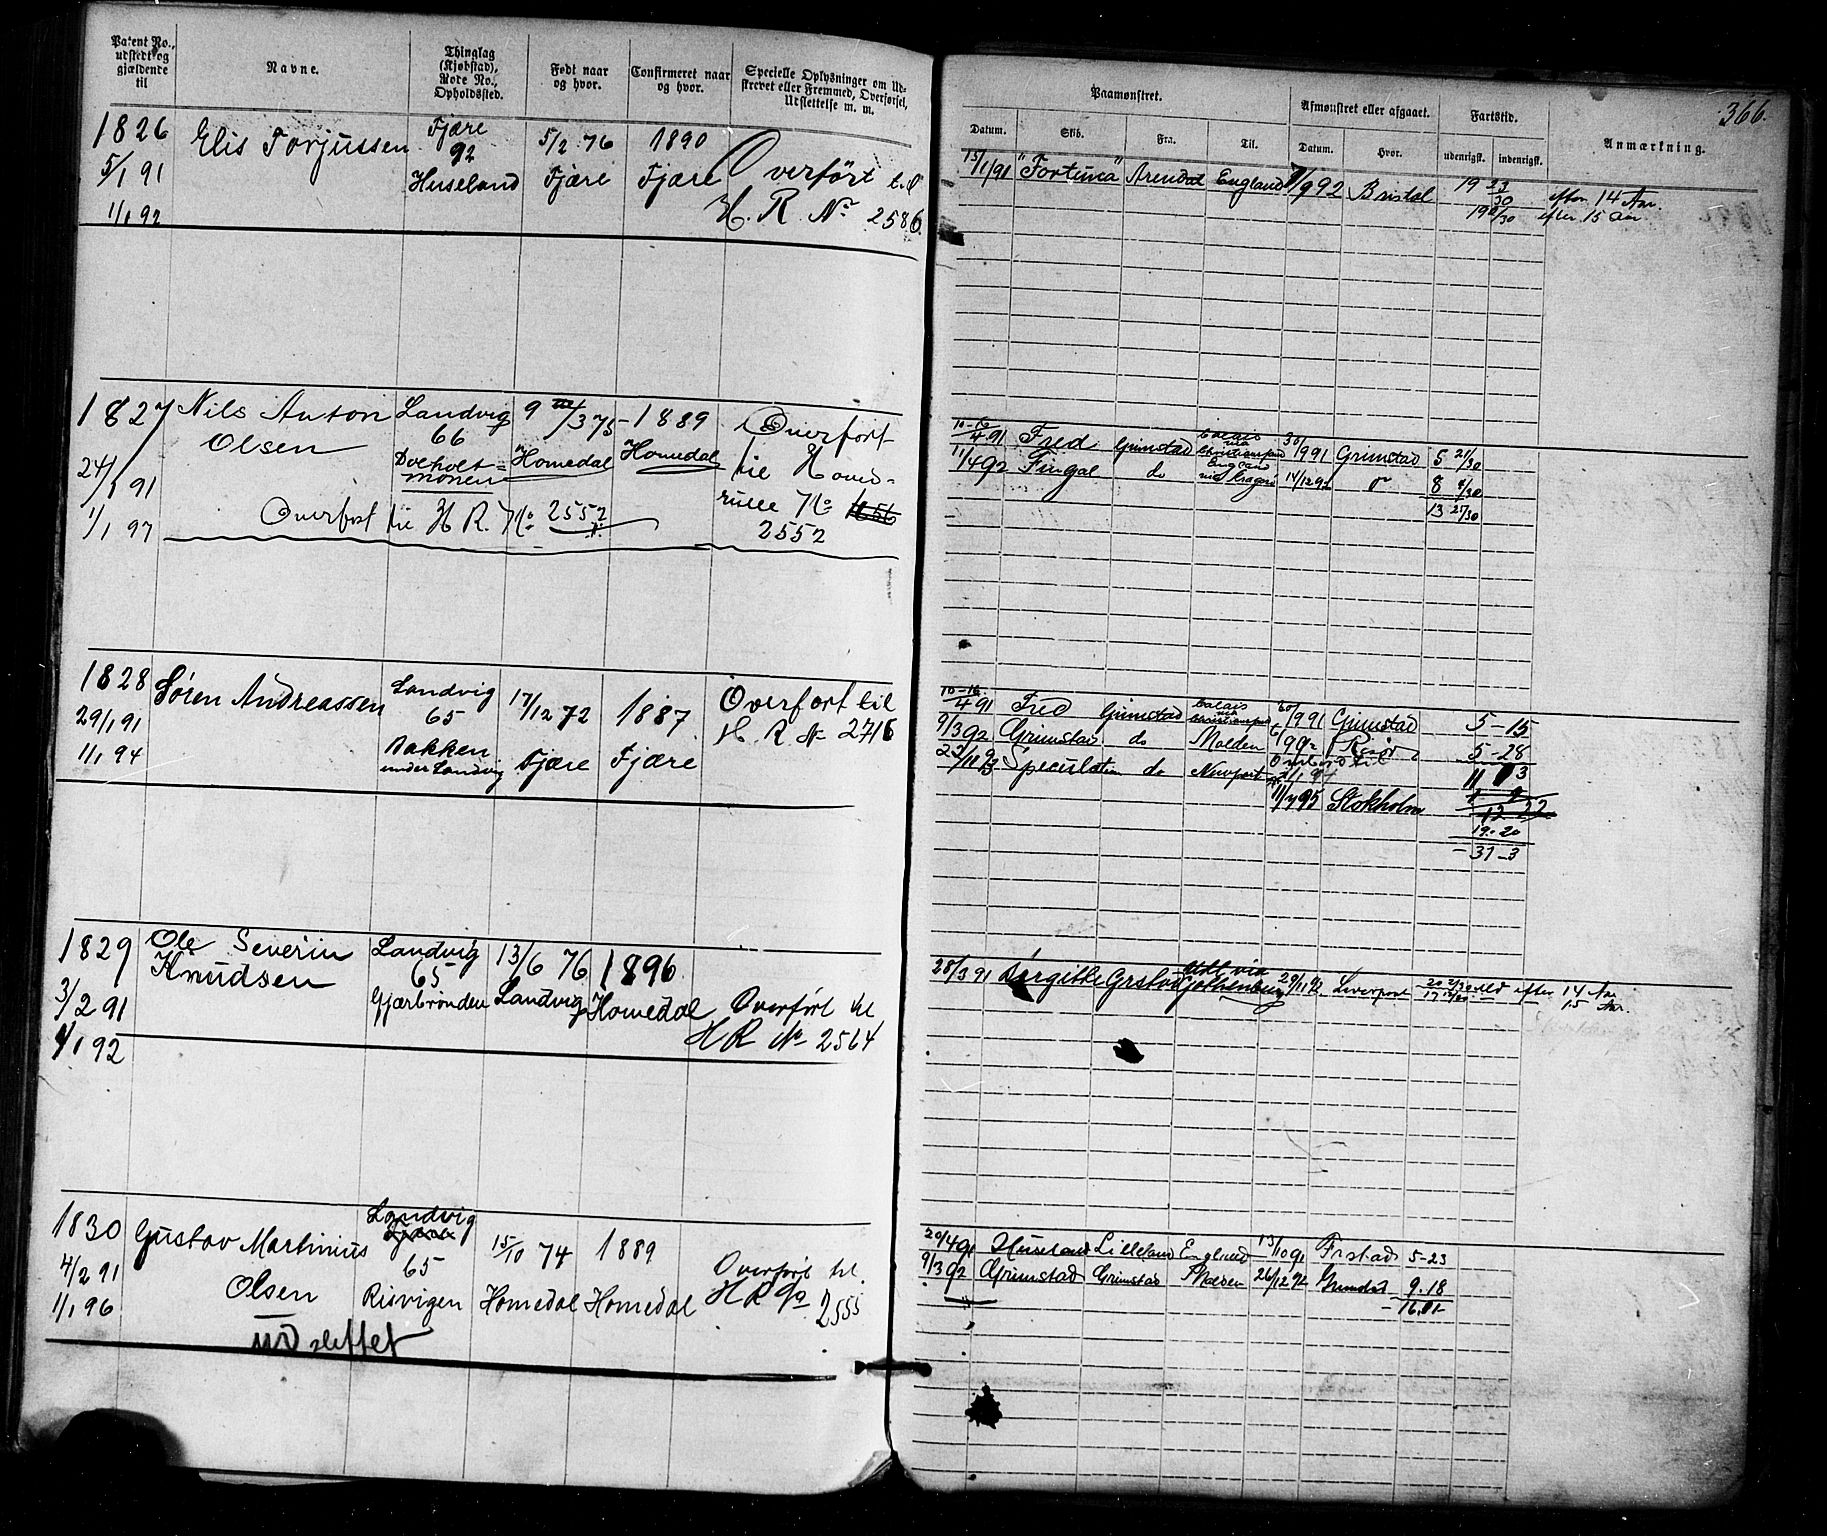 Patent No., udstedt og gjældende til
Navne.
Thinglag (Kjøbstad), Rode No., Opholdssted.
Født naar og hvor.
Confirmeret naar og hvor.
Specielle Oplysninger om Udskrevet eller Fremmed, Overførsel, Udslettelse m. m.
Paamønstret.
Afmønstret eller afgaaet.
Fartstid.
Anmærkning.
366.
Datum.
Skib.
Fra.
Til.
Datum.
Hvor.
udenrigsk.
indenrigsk.
1826
5/1 91
1/1 92
Elis Torjussen
Fjære
92
Huseland
5/2 76
Fjære
1890
Fjære
Overført til
H. R. Nr 2586.
15/1 91 "Fortuna" Arendal England 7/9 92 Bristol 19 23/30 efter 14 Aar.
efter 15 Aar
1827
24/1 91
1/1 97
Nils Anton
Olsen
Landvig
66
Dolholt-
monen
9/3 75
Homedal
1889
Homedal
Overfort
til Hoved-
rulle No
2552
Overfort til H R. No 2552
10-16/4 91 Fred Grimstad Calais via 30/9 91 Grimstad 5 21/30
11/4 92 Fingal do England 14/12 92 8 6/30
13 27/30
1828
29/1 91
1/1 94
Søren Andreassen
Landvig
65
Bakken
under Landvig
17/12 72
Fjære
1887.
Fjære
Overfort til
H. R. No 2716
10-16/4 91 Fred Grimstad Calais via 30/9 91 Grimstad 5-15
9/3 92 Grimstad do Malden 6/9 92 Risør 5-28
Speculation do Newport 11 13
11/7 95 Stokholm
12 22
19.20
- 31-3
1829
3/2 91
1/1 92
Ole Severin
Knudsen
Landvig
65
Gjærbrønden
13/6 76
Landvig
1890.
Homedal
Overført til
H R No 2564
28/3 91 Birgitte Grstad Gothenburg 29/11 92 Liverpool efter 14 Aar
15 Aar.
1830
4/2 91
1/1 96
Gustav Martinius
Olsen
Landvig
Fjære
65
Risvigen
15/10 74
Homedal
1889
Homedal
Overfört til
H R No
2555
udslettet
20/4 91 Huseland Lillesand England 13/10 91 Frstad 5-23
9/3 92 Grimstad Grimstad Malden 26/12 92 Grimstd 9.18
- 16.01